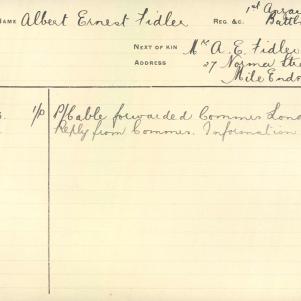 NAME Albert Ernest Fidler REG. &C. 1st Anzac
Battln
NEXT OF KIN Mr A. E. Fidler
ADDRESS 27 Norma Stre
Mile End
1/P P/Cable forwarded Commrs Lond
Reply from Commrs. Information